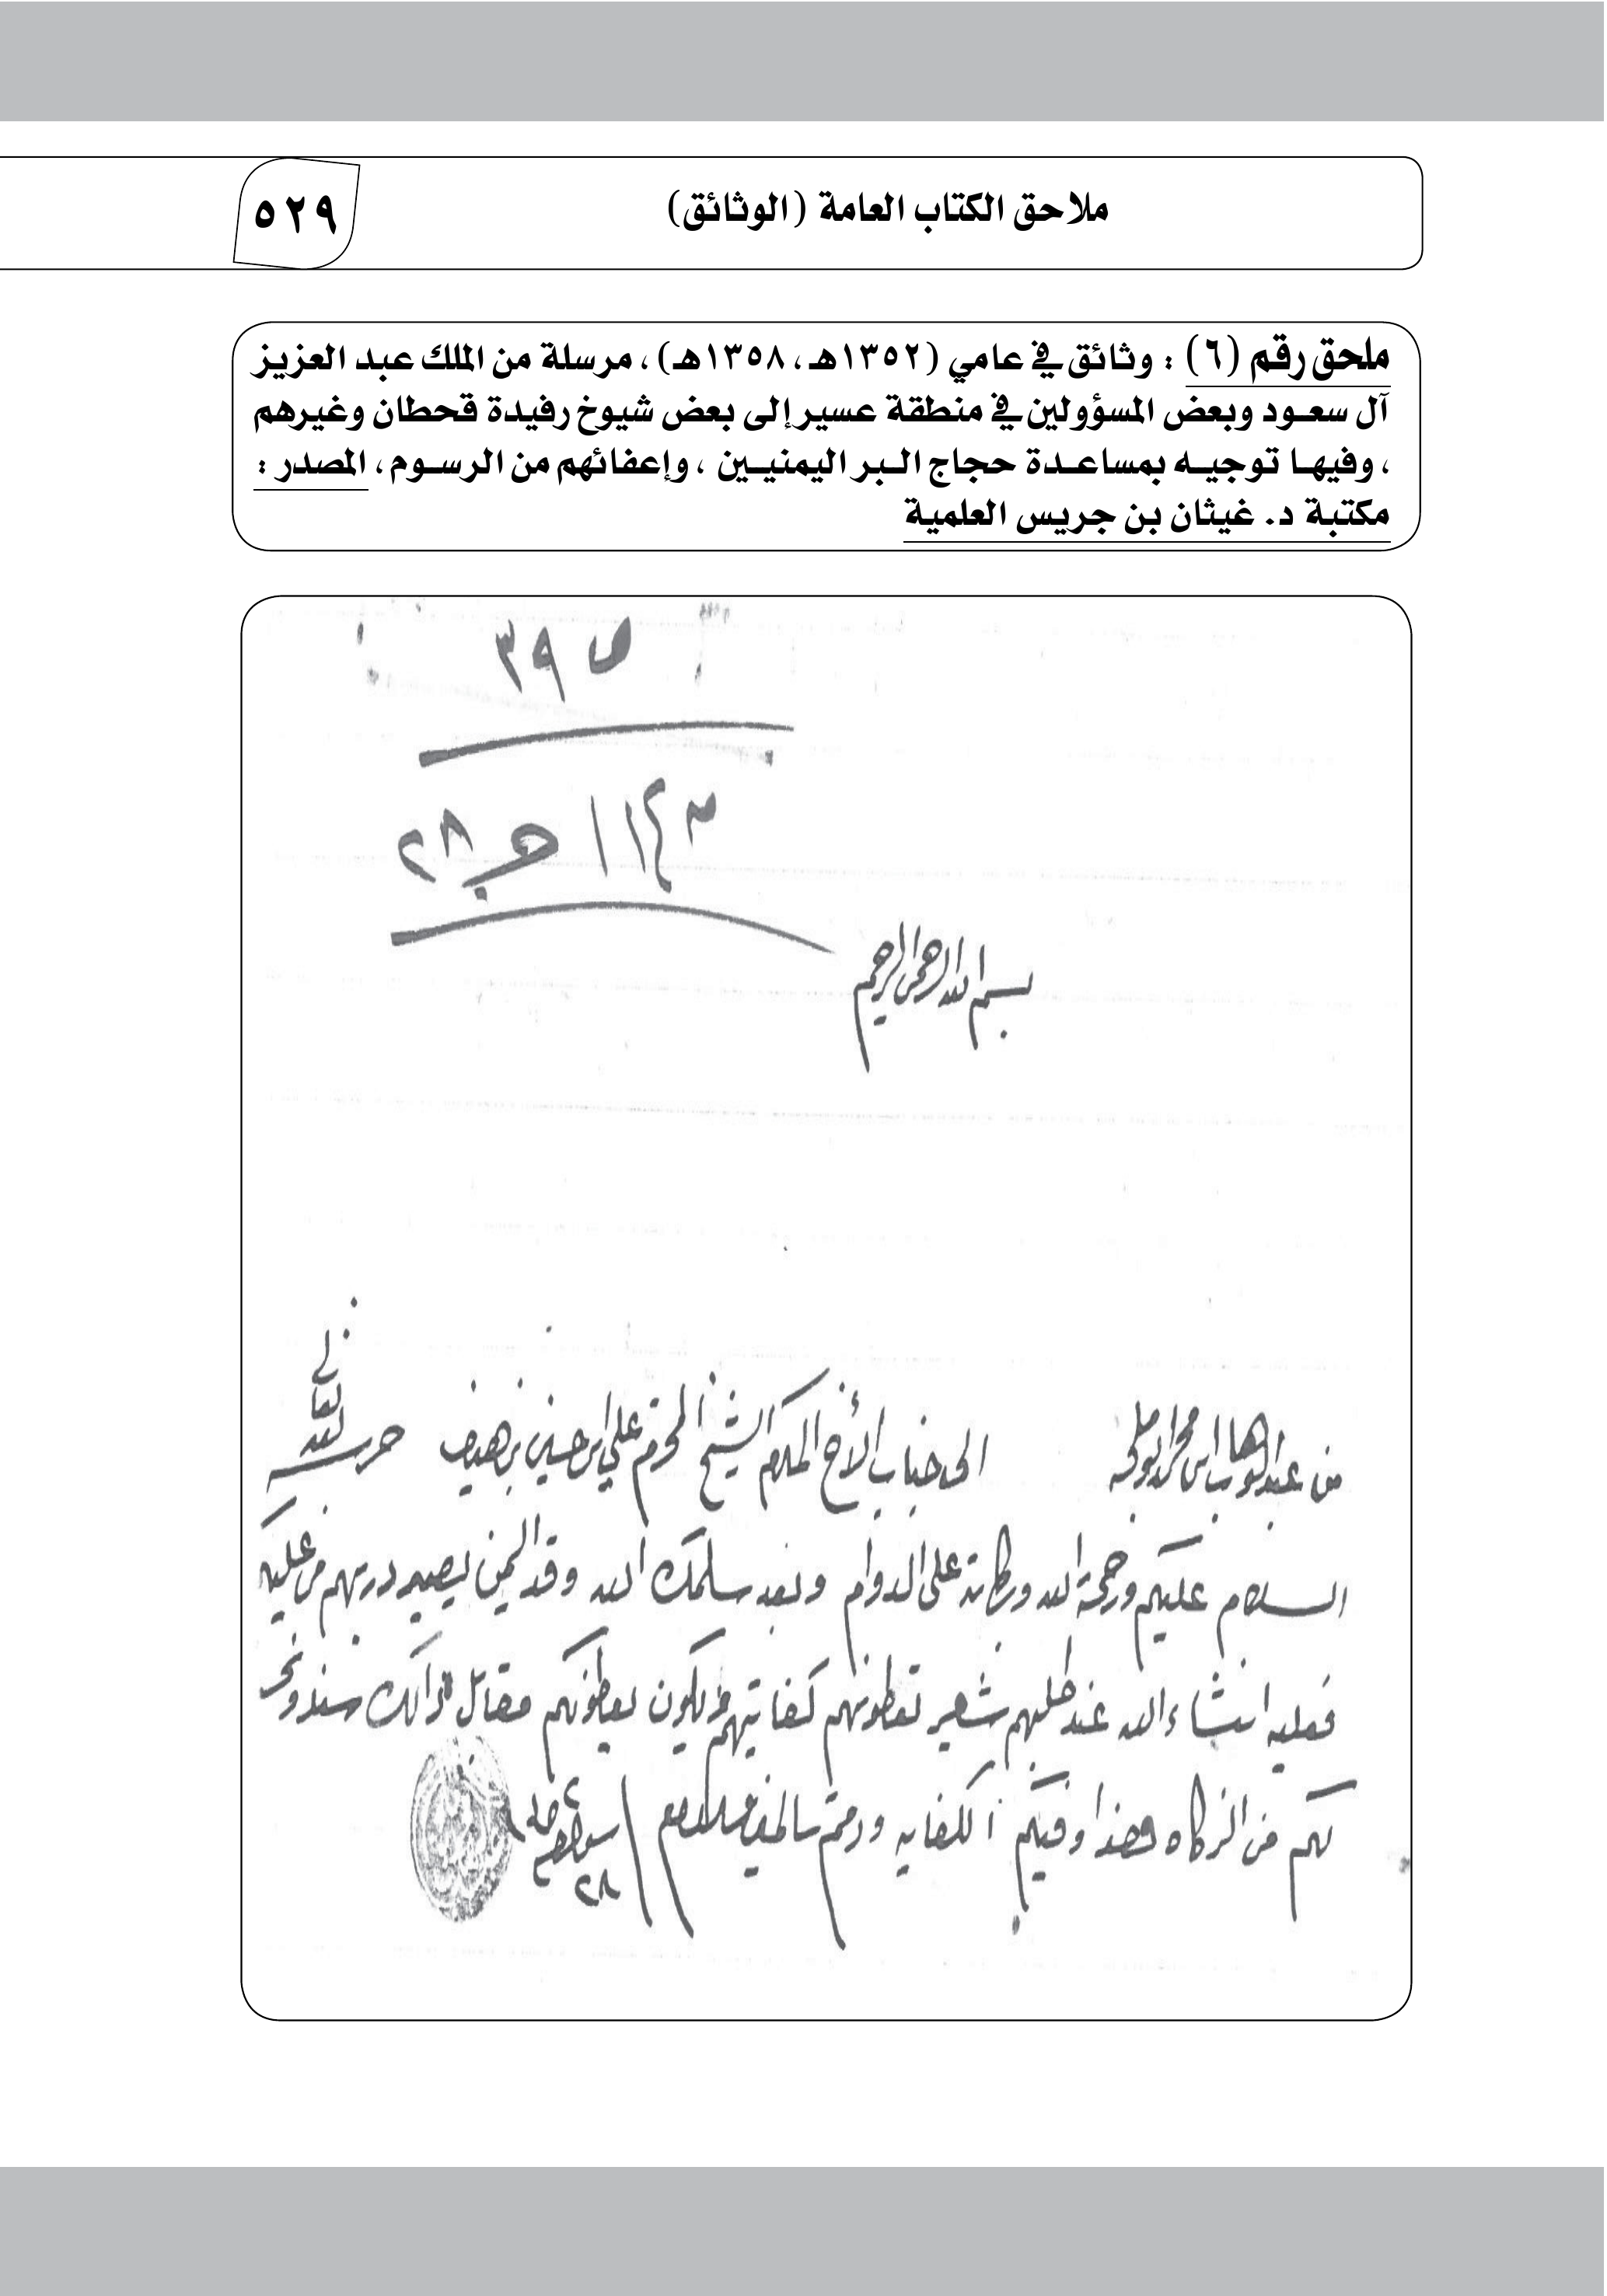 ملاحق الكتاب العامة (الوثائق)
٥٢٩
ملحق رقم (٦) : وثائق في عامي (١٣٥٢هـ، ١٣٥٨هـ)، مرسلة من الملك عبد العزيز
آل سعود وبعض المسؤولين في منطقة عسير إلى بعض شيوخ رفيدة قحطان وغيرهم
، وفيها توجيه بمساعدة حجاج البر اليمنيين ، وإعفائهم من الرسوم، المصدر :
مكتبة د. غيثان بن جريس العلمية
ص ٣٩
بسم الله الرحمن الرحيم
من عبدالوهاب ابن محمد ابوملحه الى جناب الأخ المكرم الشيخ المحترم علي ابن حسين بن هيف حرسه الله تعالى
السلام عليكم ورحمة الله وبركاته على الدوام وبعد سلمك الله وفد اليمن يصير دربهم من عليكم
فعليه انشاء الله عند طلبهم شعير تعطونهم كفايتهم ويكون يعطونكم مقابل ذالك سند ونحسب
لكم من الزكاه هذا وفيكم الكفايه ودمتم سالمين والسلام
٢٨